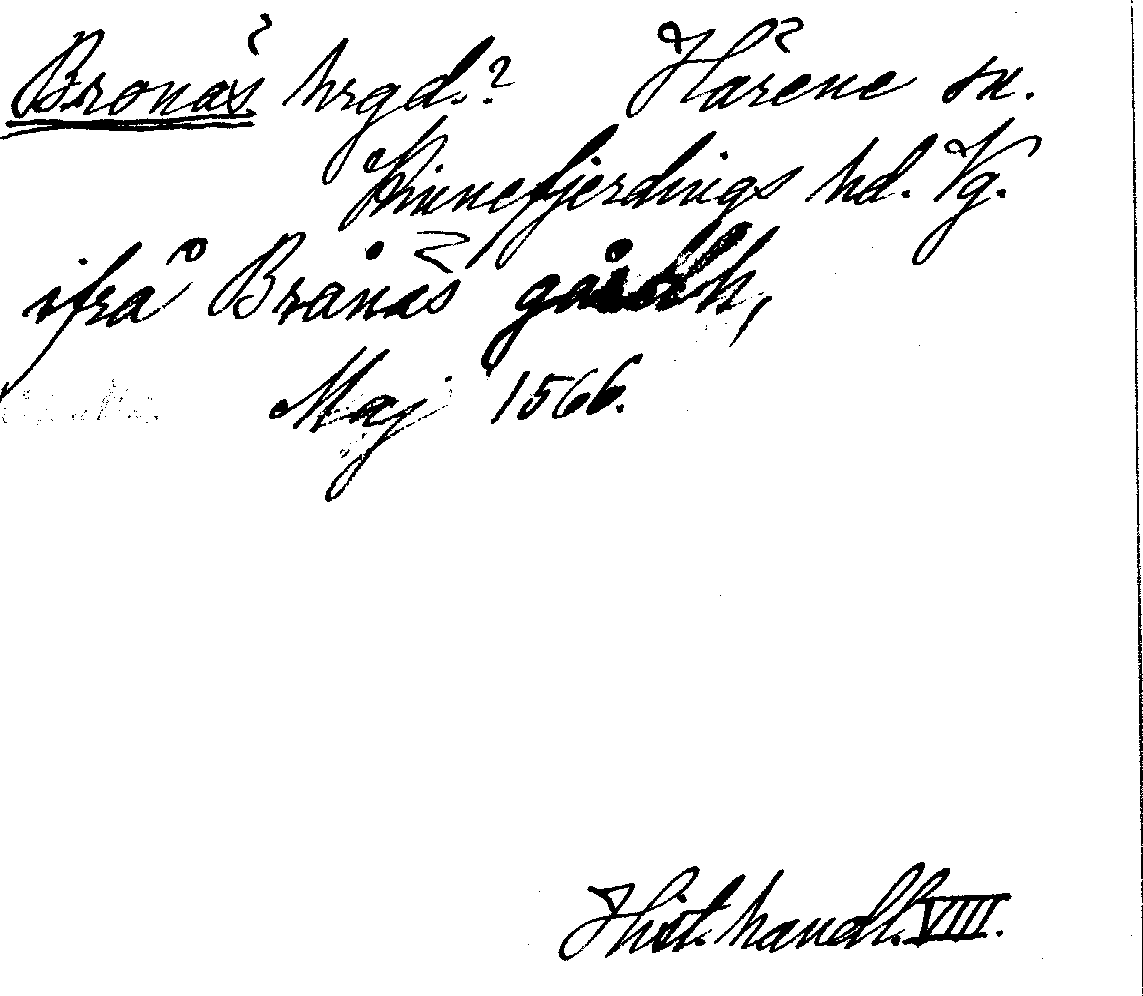 Bronäs hrgd.? Härene sn.
Kinnefjerdings hd. Vg.
ifrå Brånäs gårdh,
Maj 1566.
Hist. handl. VIII.